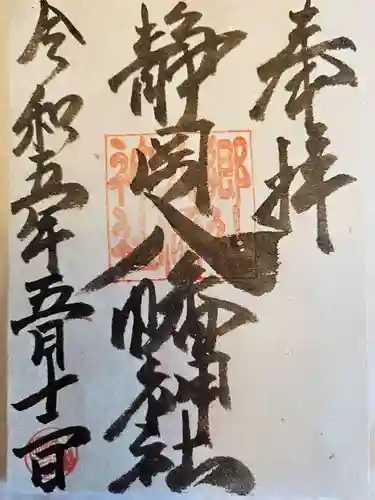 奉拝
静岡八幡神社
令和五年五月十一日